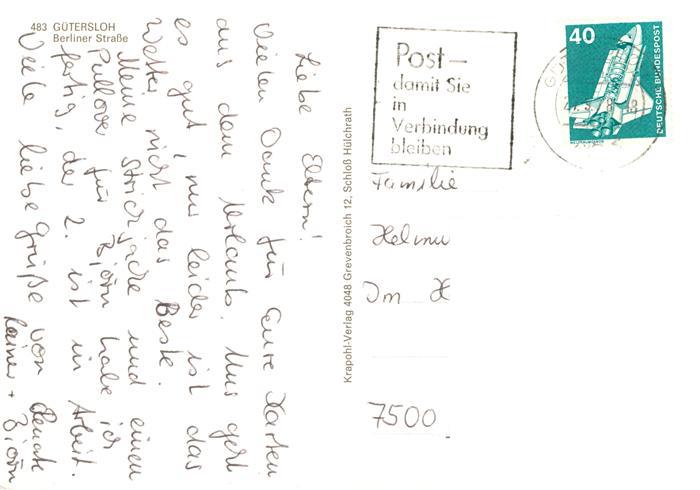 483 GÜTERSLOH
Berliner Straße
Liebe Eltern!
Vielen Dank für Eure Karten
aus dem Urlaub. Uns geht
es gut, nur leider ist das
Wetter nicht das Beste.
Meine Strickjacke und einen
Pullover für Björn habe ich
fertig, der 2. ist in Arbeit.
Viele liebe Grüße von Renate
Rainer + Björn
Krapohl-Verlag 4048 Grevenbroich 12, Schloß Hülchrath
Post –
damit Sie
in
Verbindung
bleiben
40
DEUTSCHE BUNDESPOST
Familie
Helmu
Im H
7500